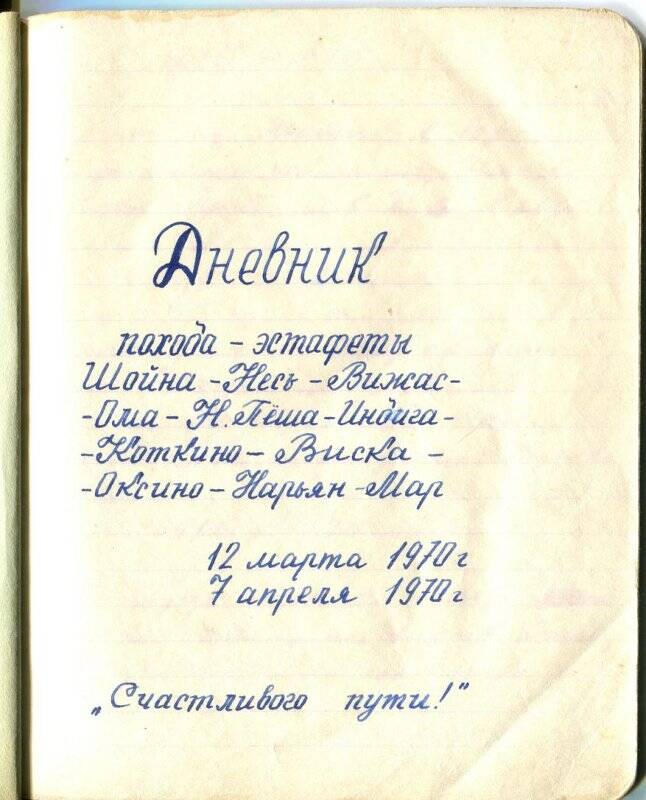 Дневник
похода - эстафеты
Шойна - Несь - Вижас-
-Ома - Н. Пёша - Индига-
-Коткино - Виска -
-Оксино - Нарьян-Мар
12 марта 1970г
7 апреля 1970г
„Счастливого пути!"